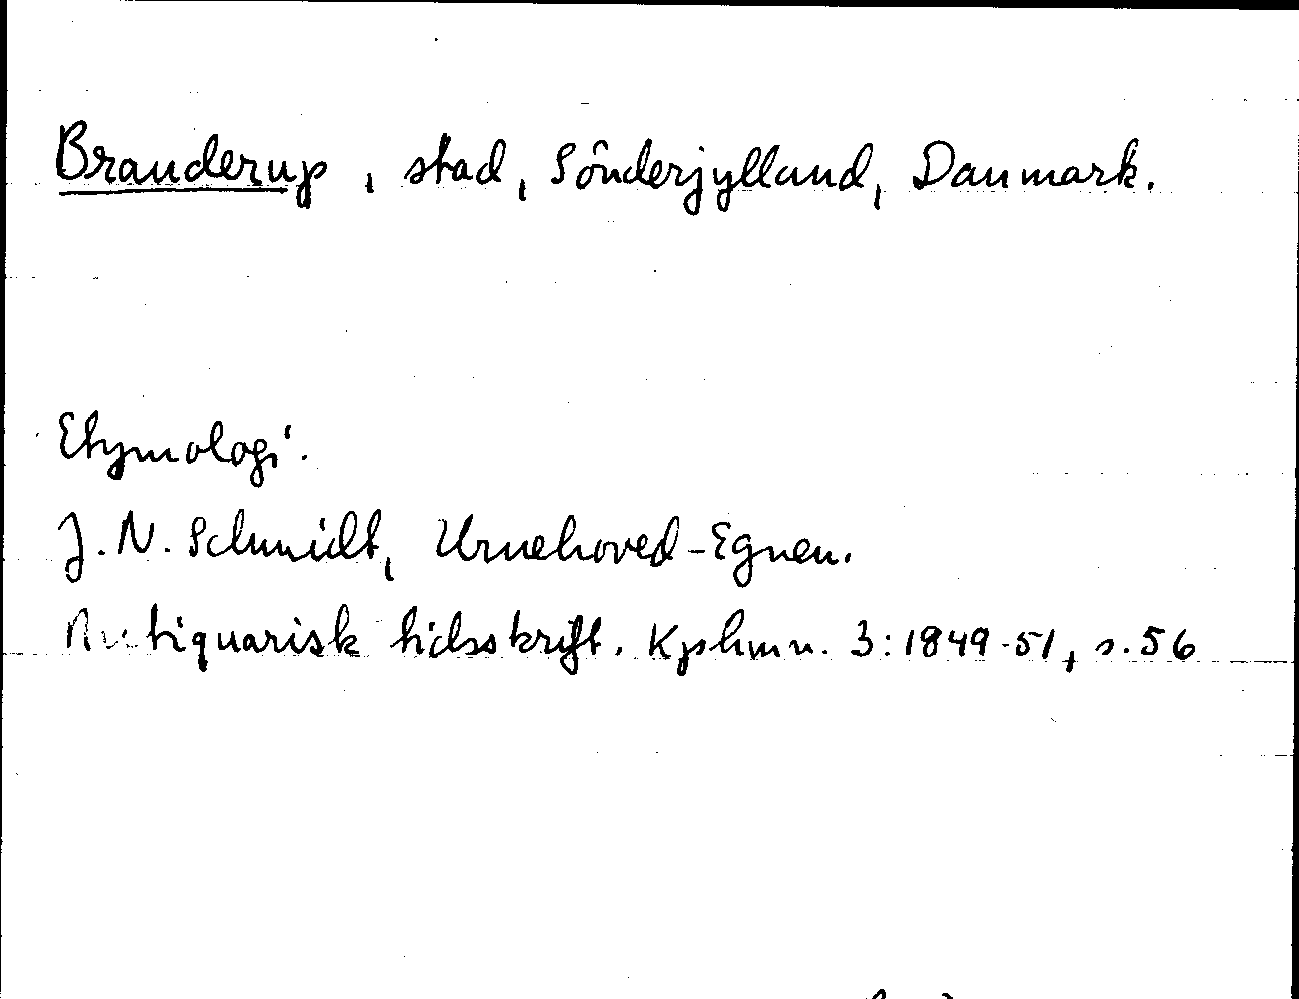 Branderup, stad, Sönderjylland, Danmark.
Etymologi.
J. N. Schmidt, Urnehoved-Egnen.
Antiquarisk tidsskrift. Kphmn. 3:1849-51, s. 56